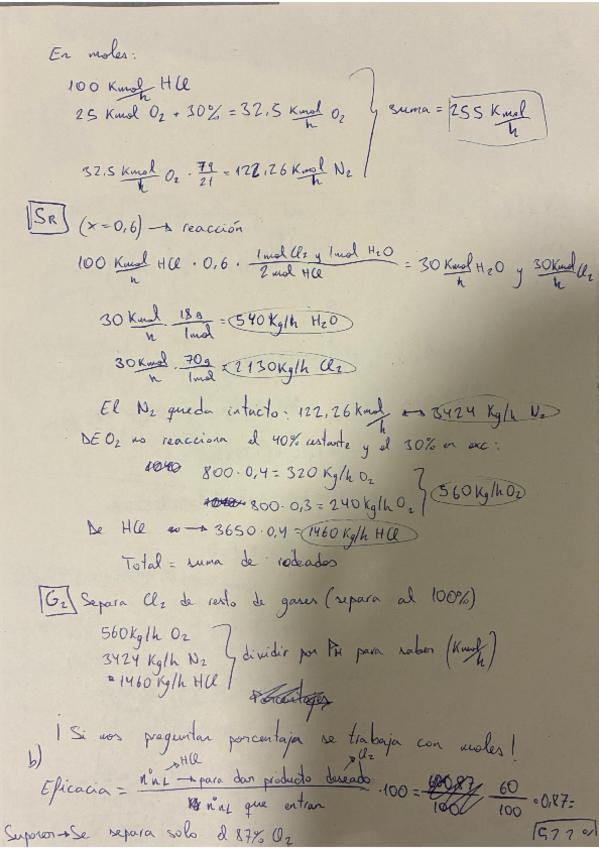 En moles:
100 Kmol/h HCl
25 Kmol O₂ + 30% = 32,5 Kmol/h O₂
suma = 255 Kmol/h
32,5 Kmol/h O₂ · 79/21 = 122,26 Kmol/h N₂
SR (x=0,6) → reacción
100 Kmol/h HCl · 0,6 · 1mol Cl₂ y 1mol H₂O / 2 mol HCl = 30 Kmol/h H₂O y 30 Kmol/h Cl₂
30 Kmol/h · 18g/1mol = 540 Kg/h H₂O
30 Kmol/h · 70g/1mol = 2130 Kg/h Cl₂
El N₂ queda intacto: 122,26 Kmol/h ↔ 3424 Kg/h N₂
DE O₂ no reacciona el 40% restante y el 30% en exc:
800·0,4 = 320 Kg/h O₂
800·0,3 = 240 Kg/h O₂
560 Kg/h O₂
De HCl → 3650·0,4 = 1460 Kg/h HCl
Total = suma de rodeados
G₂ Separa Cl₂ de resto de gases (separa al 100%)
560 Kg/h O₂
3424 Kg/h N₂
1460 Kg/h HCl
dividir por PM para saber (Kmol/h)
¡Si nos preguntan porcentaja se trabaja con moles!
b)
HCl
Cl₂
Eficacia = nºn → para dar producto deseado / nºn que entran · 100 = 60/100 · 0,87 =
Suponer → Se separa solo el 87%